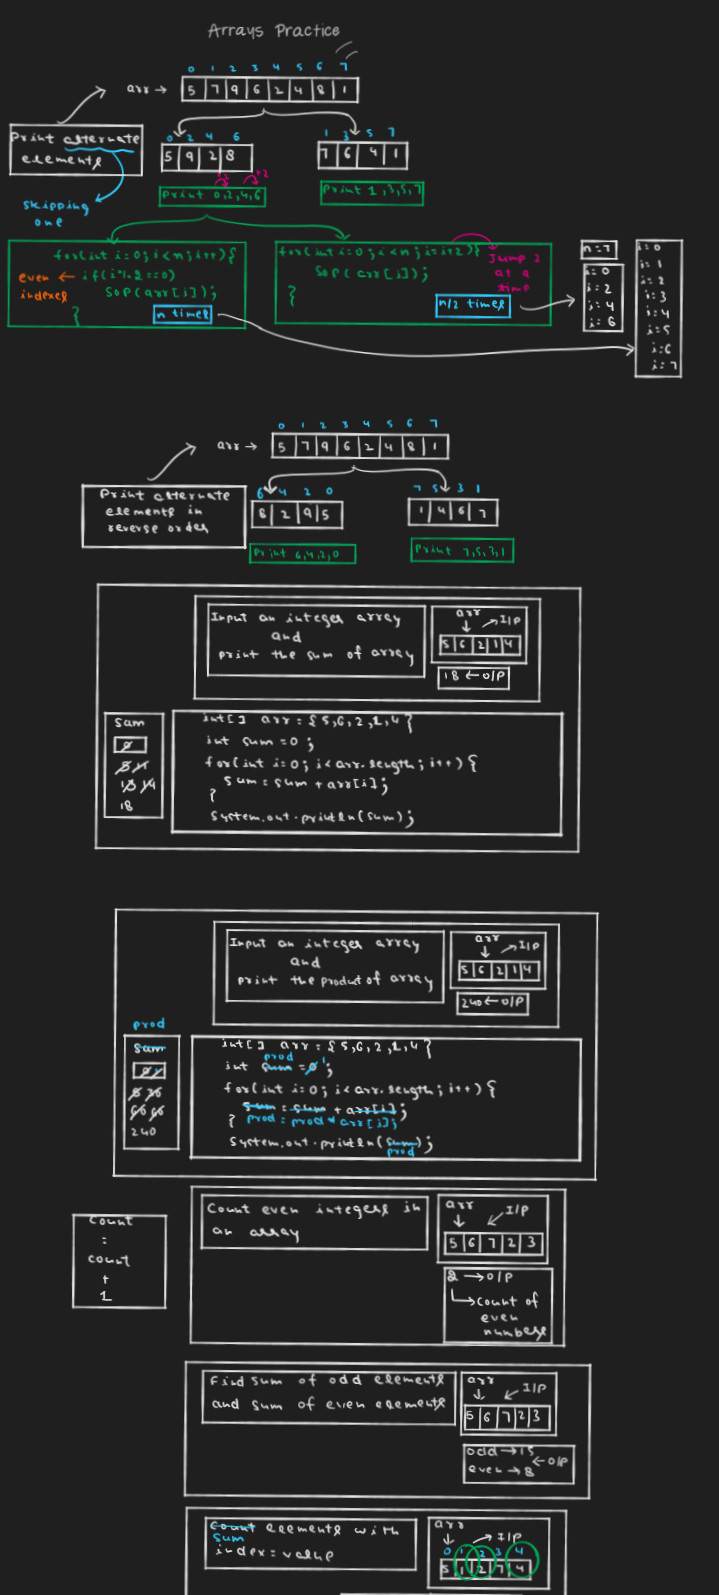 Arrays Practice
0 1 2 3 4 5 6 7
arr → 5 7 9 6 2 4 8 1
Print alternate
elements
skipping
one
0 2 4 6
5 9 2 8
+2 +2
Print 0,2,4,6
1 3 5 7
7 6 4 1
Print 1,3,5,7
for(int i=0; i<n; i++){
even ← if(i%2==0)
indexes
SOP(arr[i]);
}
n times
for(int i=0; i<n; i=i+2){
SOP(arr[i]);
}
Jump 2
at a
time
n/2 times
n=7
i=0
i=2
i=4
i=6
i=0
i=1
i=2
i=3
i=4
i=5
i=6
i=7
0 1 2 3 4 5 6 7
arr → 5 7 9 6 2 4 8 1
Print alternate
elements in
reverse order
6 4 2 0
8 2 9 5
Print 6,4,2,0
7 5 3 1
1 4 6 7
Print 7,5,3,1
Input an integer array
and
print the sum of array
arr
I/P
5 6 2 1 4
18 ← O/P
sum
0
5 11
13 14
18
int[] arr = {5,6,2,1,4}
int sum = 0;
for(int i=0; i<arr.length; i++){
sum = sum + arr[i];
}
System.out.println(sum);
Input an integer array
and
print the product of array
arr
I/P
5 6 2 1 4
240 ← O/P
prod
sum
0 1
5 30
60 60
240
int[] arr = {5,6,2,1,4}
prod
int sum = 0 1;
for(int i=0; i<arr.length; i++){
sum = sum + arr[i];
} prod = prod * arr[i];
System.out.println(sum);
prod
count
=
count
+
1
Count even integers in
an array
arr
I/P
5 6 7 2 3
2 → O/P
count of
even
numbers
Find sum of odd elements
and sum of even elements
arr
I/P
5 6 7 2 3
odd → 15
← O/P
even → 8
Count elements with
sum
index = value
arr
→ I/P
0 1 2 3 4
5 1 2 7 4